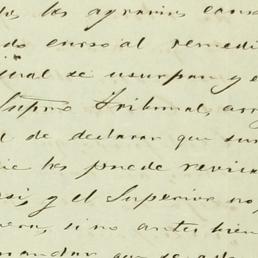 los agravios caus
do curso al remedi
tual se usurpan y e
Supmo Tribunal, arr
d de declarar que sum
ie les puede revi
si, y el Superior no,
era, sino antes bien
mandar que se